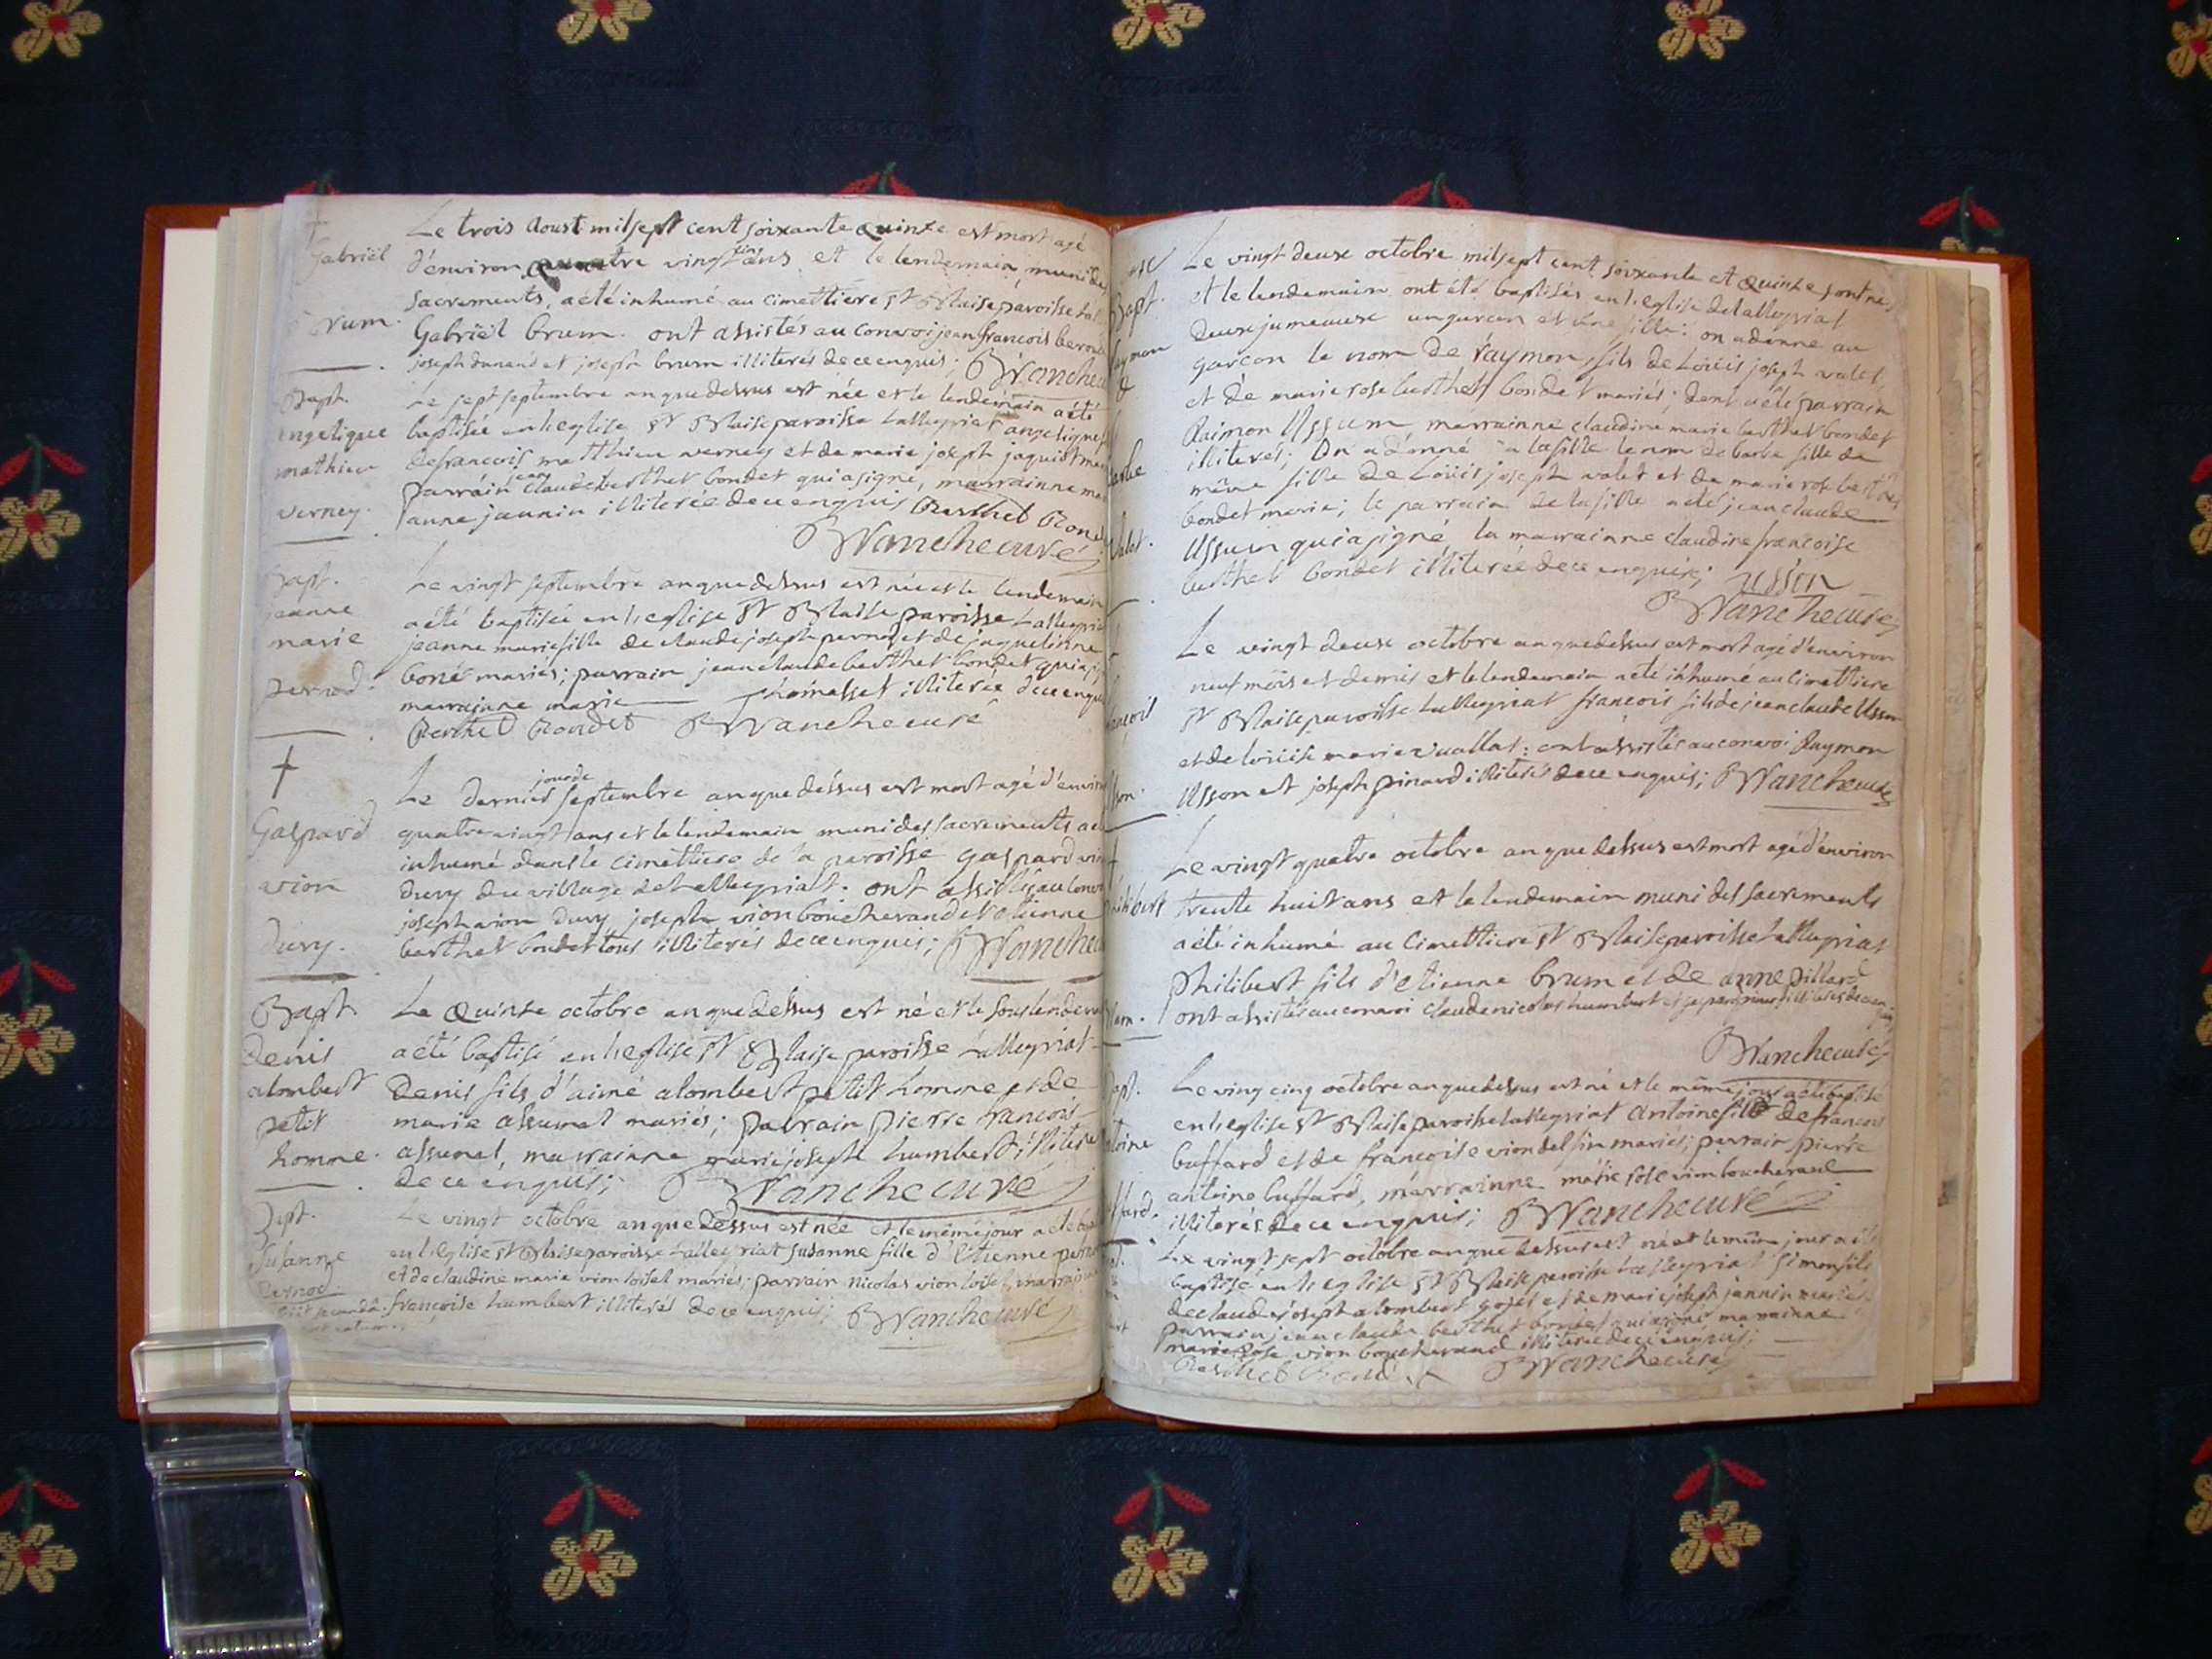 Le trois Aoust mil sept cent soixante Quinze est mort agé
Gabriël
d'environ quatre vingt cinq ans et le lendemain, muni des
sacrements, a été inhumé au cimettiere St Blaise paroisse
Brum.
Gabriël brum. ont assistés au convoi jean françois
joseph dunand et joseph brum illiterés de ce enquis;
Bapt.
angelique
mathieu
verney.
Le sept septembre an que dessus est née et le lendemain a été
baptisée en l'eglise St Blaise paroisse Lalleyriat angelique
de francois matthieu verney et de marie joseph jaquiot
parrain jean claude berthet bondet qui a signé, marrainne
anne jannin illiterée de ce enquis Berthet Bondet
Blanc he curé
Bapt.
jeanne
marie
pernod.
Le vingt septembre an que dessus est née et le lendemain
a été baptisée en l'eglise St Blaise paroisse Lalleyriat
jeanne marie fille de claude joseph pernod et de jaqueline
boné mariés; parrain jean claude berthet bondet qui a
marrainne marie thomasset illiterée de ce enquis
Berthet Bondet
†
Gaspard
vion
Dury.
jour de
Le dernier septembre an que dessus est mort agé d'environ
quatre vingt ans et le lendemain muni des sacrements a été
inhumé dans le cimettiere de la paroisse gaspard vion
dury du village de Lalleyriat. ont assistés au convoi
joseph vion dury joseph vion boucherand et etienne
berthet bondet tous illiterés de ce enquis;
Bapt
Denis
alombert
petit
homme.
Le Quinze octobre an que dessus est né et le
a été baptisé en l'eglise St Blaise paroisse Lalleyriat
Denis fils d'aimé alombert petit homme et de
marie assumel mariés; parrain pierre francois
assumel, marrainne marie joseph humbert illiterés
de ce enquis;
Bapt.
Susanne
pernod
Le vingt octobre an que dessus est née et le même jour a été
en l'eglise St Blaise paroisse Lalleyriat susanne fille d'etienne pernod
et de claudine marie vion loisel mariés; parrain nicolas vion loisel, marrainne
françoise humbert illiterés de ce enquis;
Le vingt deux octobre mil sept cent soixante et Quinze sont nés
et le lendemain ont été baptisés en l'eglise de Lalleyriat
deux jumeaux un garcon et une fille: on a donné au
garcon le nom de raymon, fils de Loüis joseph valet
et de marie rose berthet bondet mariés; dont a été parrain
Raimon Ussum marrainne claudine marie berthet bondet
illiterés; On a donné a la fille le nom de barbe fille de
même fille de Loüis joseph valet et de marie rose berthet
bondet mariés; le parrain de la fille a été jean claude
Ussum qui a signé la marrainne claudine francoise
berthet bondet illiterée de ce enquise; usson
Le vingt deux octobre an que dessus est mort agé d'environ
neuf mois et demis et le lendemain a été inhumé au cimettiere
St Blaise paroisse Lalleyriat francois fils de jean claude Usson
et de loüise marie vuallat: ont assistés au convoi Raymon
Usson et joseph pinard illiterés de ce enquis;
Le vingt quatre octobre an que dessus est mort agé d'environ
trente huit ans et le lendemain muni des sacrements
a été inhumé au cimettiere St Blaise paroisse Lalleyriat
philibert fils d'etienne brum et de anne pillard
ont assistés au convoi claude nicolas humbert
Le vingt cinq octobre an que dessus est né et le même jour a été baptisé
en l'eglise St Blaise paroisse Lalleyriat antoine fils de francois
buffard et de francoise vion delfin mariés; parrain pierre
antoine buffard, marrainne marie rose vion boucherand
illiterés de ce enquis;
Le vingt sept octobre an que dessus est né et le même jour a été
baptisé en l'eglise St Blaise paroisse Lalleyriat simon fils
de claude joseph alombert goget et de marie joseph jannin mariés
parrain jean claude berthet bondet qui a signé marrainne
marie rose vion boucherand illiterée de ce enquis;